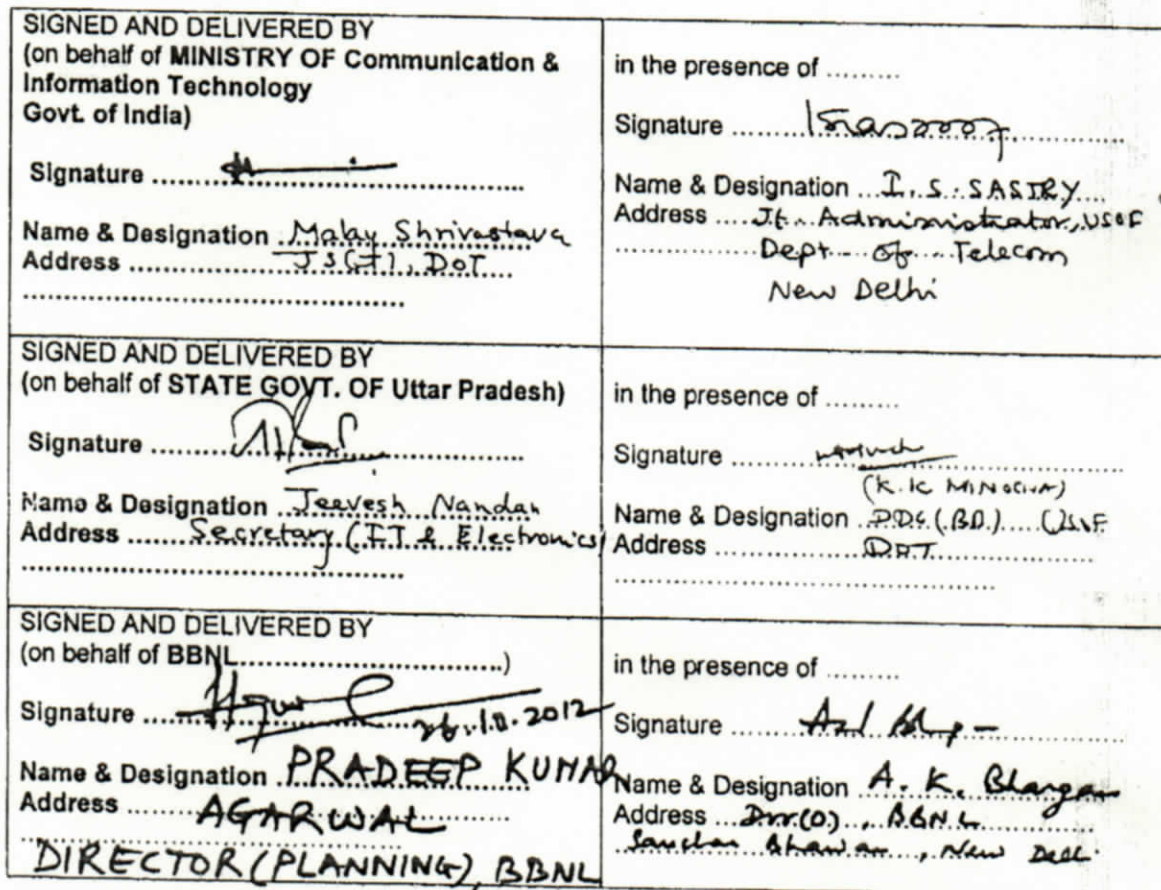 SIGNED AND DELIVERED BY
(on behalf of MINISTRY OF Communication &
Information Technology
Govt. of India)
Signature ..........
Name & Designation Malay Shrivastava
Address .......... JS(T), DOT
in the presence of ........
Signature ..........
Name & Designation I. S. SASTRY
Address Jt. Administrator, USOF
Dept of Telecom
New Delhi
SIGNED AND DELIVERED BY
(on behalf of STATE GOVT. OF Uttar Pradesh)
Signature ..........
Name & Designation Jeevesh Nandan
Address Secretary (IT & Electronics)
in the presence of ........
Signature ..........
(K. K MINOCHA)
Name & Designation DDG (BB) USOF
Address DOT
SIGNED AND DELIVERED BY
(on behalf of BBNL..............................)
Signature .......... 26.10.2012
Name & Designation PRADEEP KUMAR
Address AGARWAL
DIRECTOR (PLANNING), BBNL
in the presence of ........
Signature ..........
Name & Designation A. K. Bhargava
Address Dir(O), BBNL
Sanchar Bhawan, New Delhi